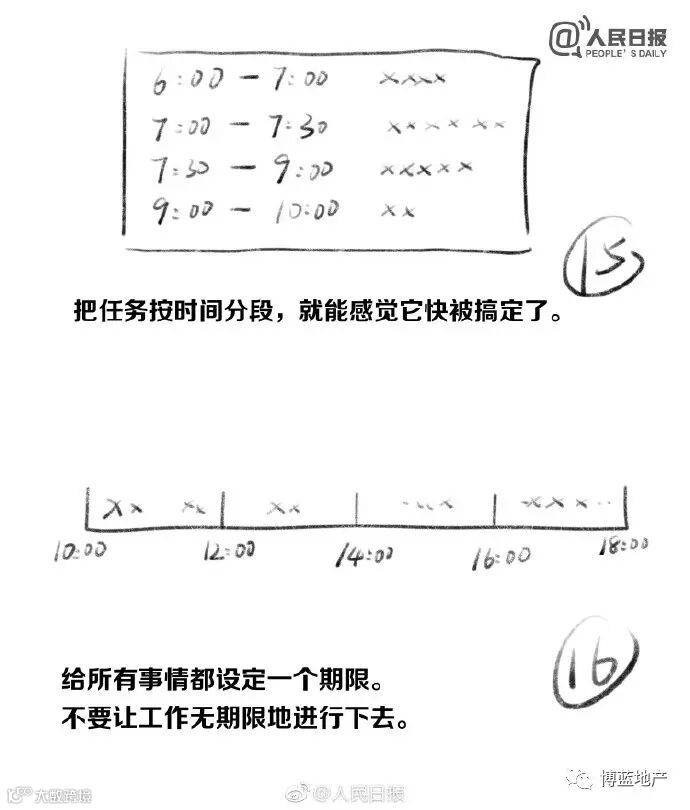 @人民日报
PEOPLE'S DAILY
6:00 — 7:00 ××××
7:00 — 7:30 ×××× ××
7:30 — 9:00 ×××××
9:00 — 10:00 ××
15
把任务按时间分段，就能感觉它快被搞定了。
×× ×× ×× ×××
10:00 12:00 14:00 16:00 18:00
16
给所有事情都设定一个期限。
不要让工作无期限地进行下去。
大数跨境 @人民日报 博蓝地产